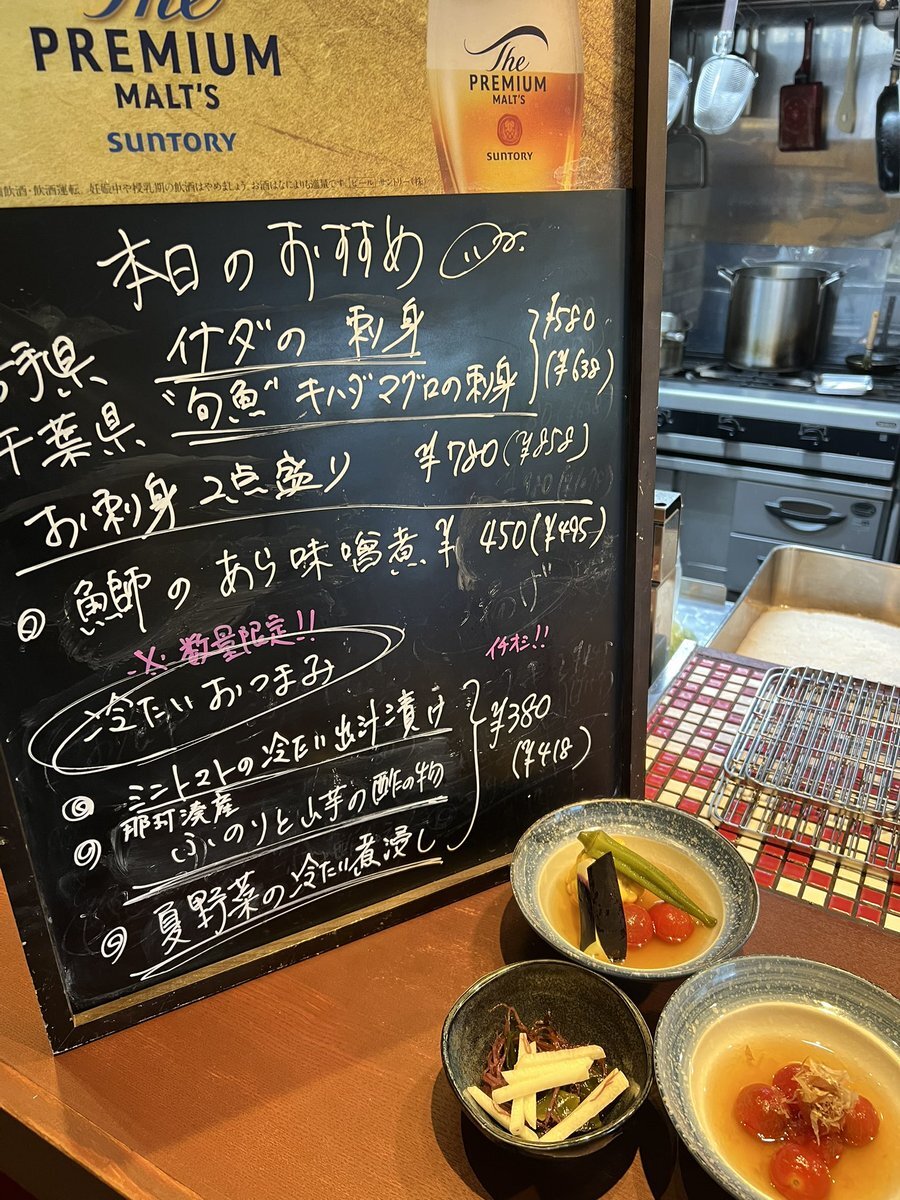 The
PREMIUM
MALT'S
SUNTORY
The
PREMIUM
MALT'S
SUNTORY
飲酒・飲酒運転。妊娠中や授乳期の飲酒はやめましょう。お酒はなによりも適量です。「ビール」サントリー(株)
本日のおすすめ
手県 イナダの 刺身
千葉県 "旬魚" キハダマグロの刺身
¥580
(¥638)
お刺身 2点盛り ¥780(¥858)
鰤の あら味噌煮 ¥450(¥495)
※数量限定!!
イチオシ!!
冷たいおつまみ
ミニトマトの冷たい出汁漬け
那珂湊産
ふのりと山芋の酢の物
夏野菜の冷たい煮浸し
¥380
(¥418)